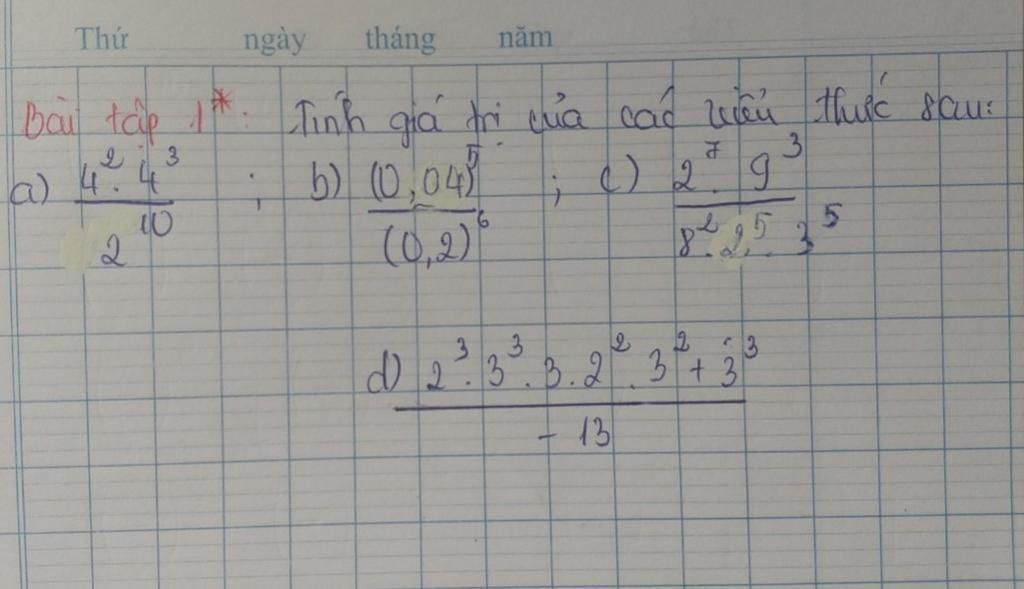 Thứ ngày tháng năm
Bài tập 1*: Tính giá trị của các biểu thức sau:
a) (4² . 4³) / 2¹⁰ ; b) (0,04)⁵ / (0,2)⁶ ; c) (2⁷ . 9³) / (8² . 2⁵ . 3⁵)
d) (2³ . 3³ . 3 . 2² . 3² + 3³) / (- 13)